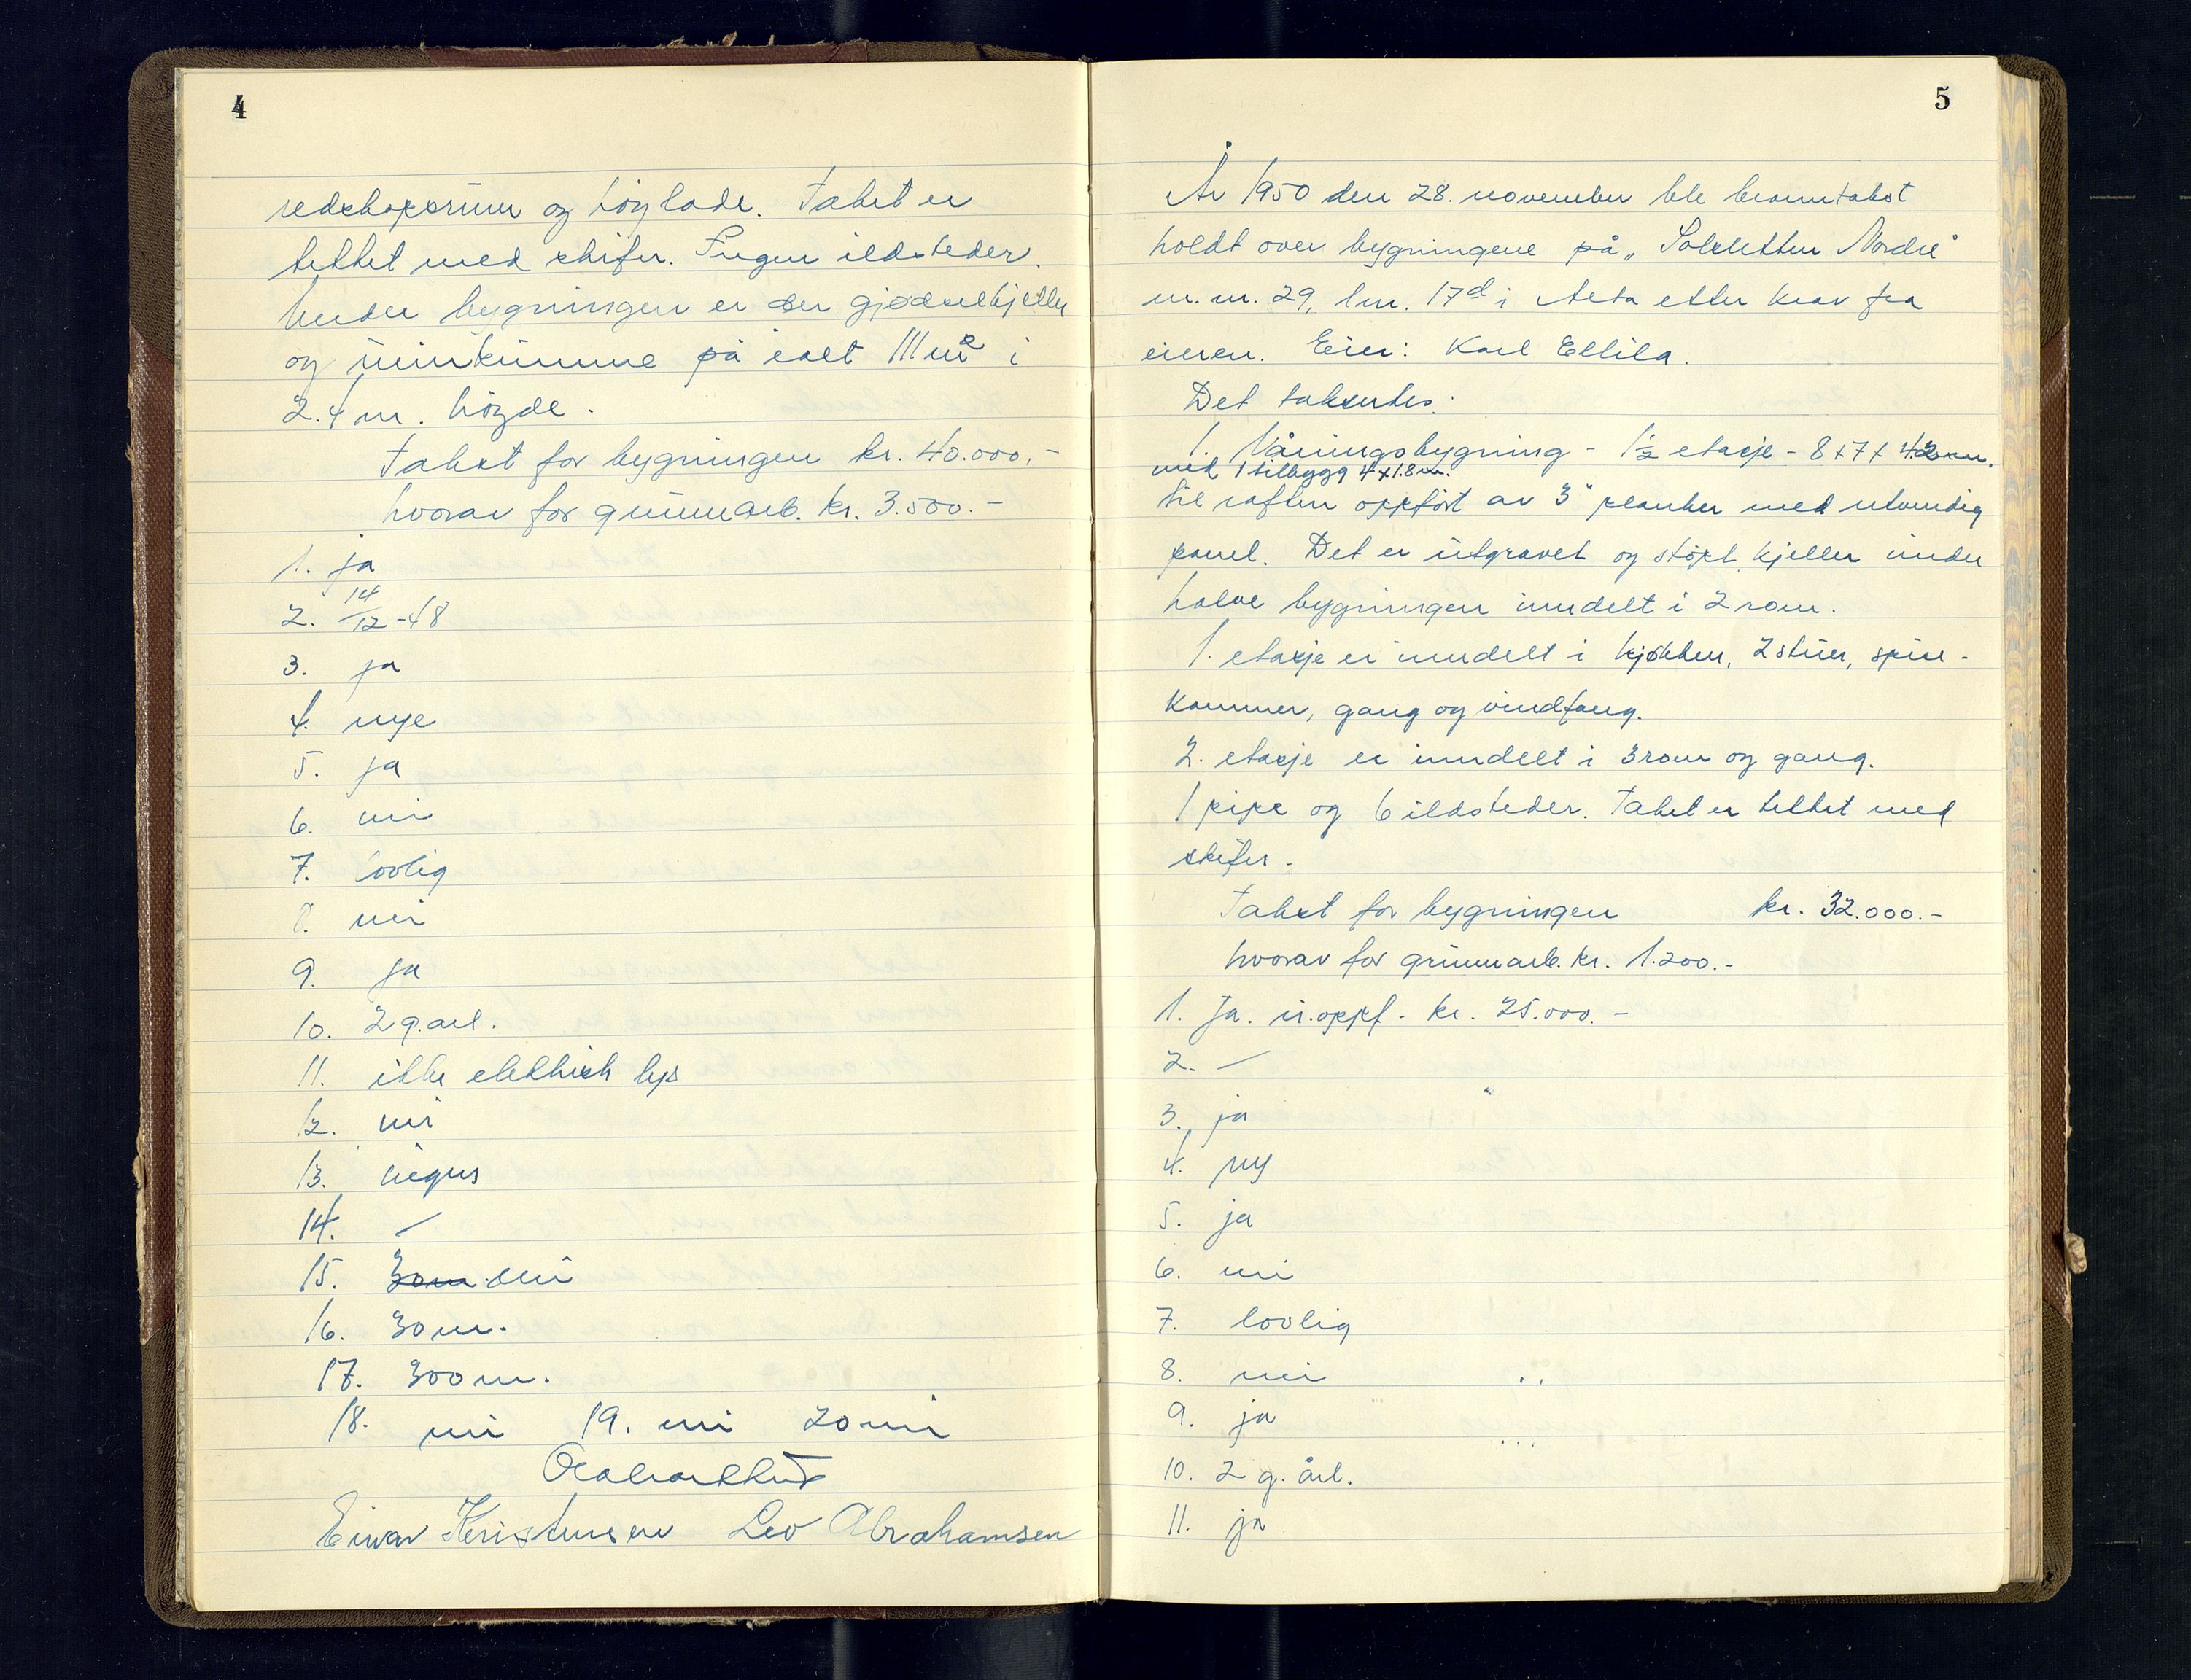 4
redskapsrum og höylade. Taket er
tekket med skifer. Ingen ildsteder.
Under bygningen er der gjødselkjeller
og urinkumme på ialt 111 m² i
2.4 m. höyde.
Takst for bygningen kr. 40.000,-
hvorav for grunnarb. kr. 3.500.-
1. ja
2. 14/12-48
3. ja
4. nye
5. ja
6. nei
7. lovlig
8. nei
9. ja
10. 2 g. årl.
11. ikke elektrisk lys
12. nei
13. ingens
14. -
15. 30 m nei
16. 30 m.
17. 300 m.
18. nei 19. nei 20 nei
Einar Kristensen Leo Abrahamsen
5
År 1950 den 28. november ble branntakst
holdt over bygningene på „Solsletten Nordre"
m.nr. 29, lnr. 17d i Alta etter krav fra
eieren. Eier: Karl Ellila.
Det taksertes:
1. Våningsbygning - 1½ etasje - 8 x 7 x 4.20 m.
med 1 tilbygg 4 x 1.8 m.
til raften oppfört av 3" planker med utvendig
panel. Det er utgravet og stöpt kjeller under
halve bygningen inndelt i 2 rom.
1. etasje er inndelt i kjøkken, 2 stuer, spise-
kammer, gang og vindfang.
2. etasje er inndelt i 3 rom og gang.
1 pipe og 6 ildsteder. Taket er tekket med
skifer.
Takst for bygningen kr. 32.000.-
hvorav for grunnarb. kr. 1.200.-
1. Ja. u. oppf. kr. 25.000.-
2. -
3. ja
4. ny
5. ja
6. nei
7. lovlig
8. nei
9. ja
10. 2 g. årl.
11. ja